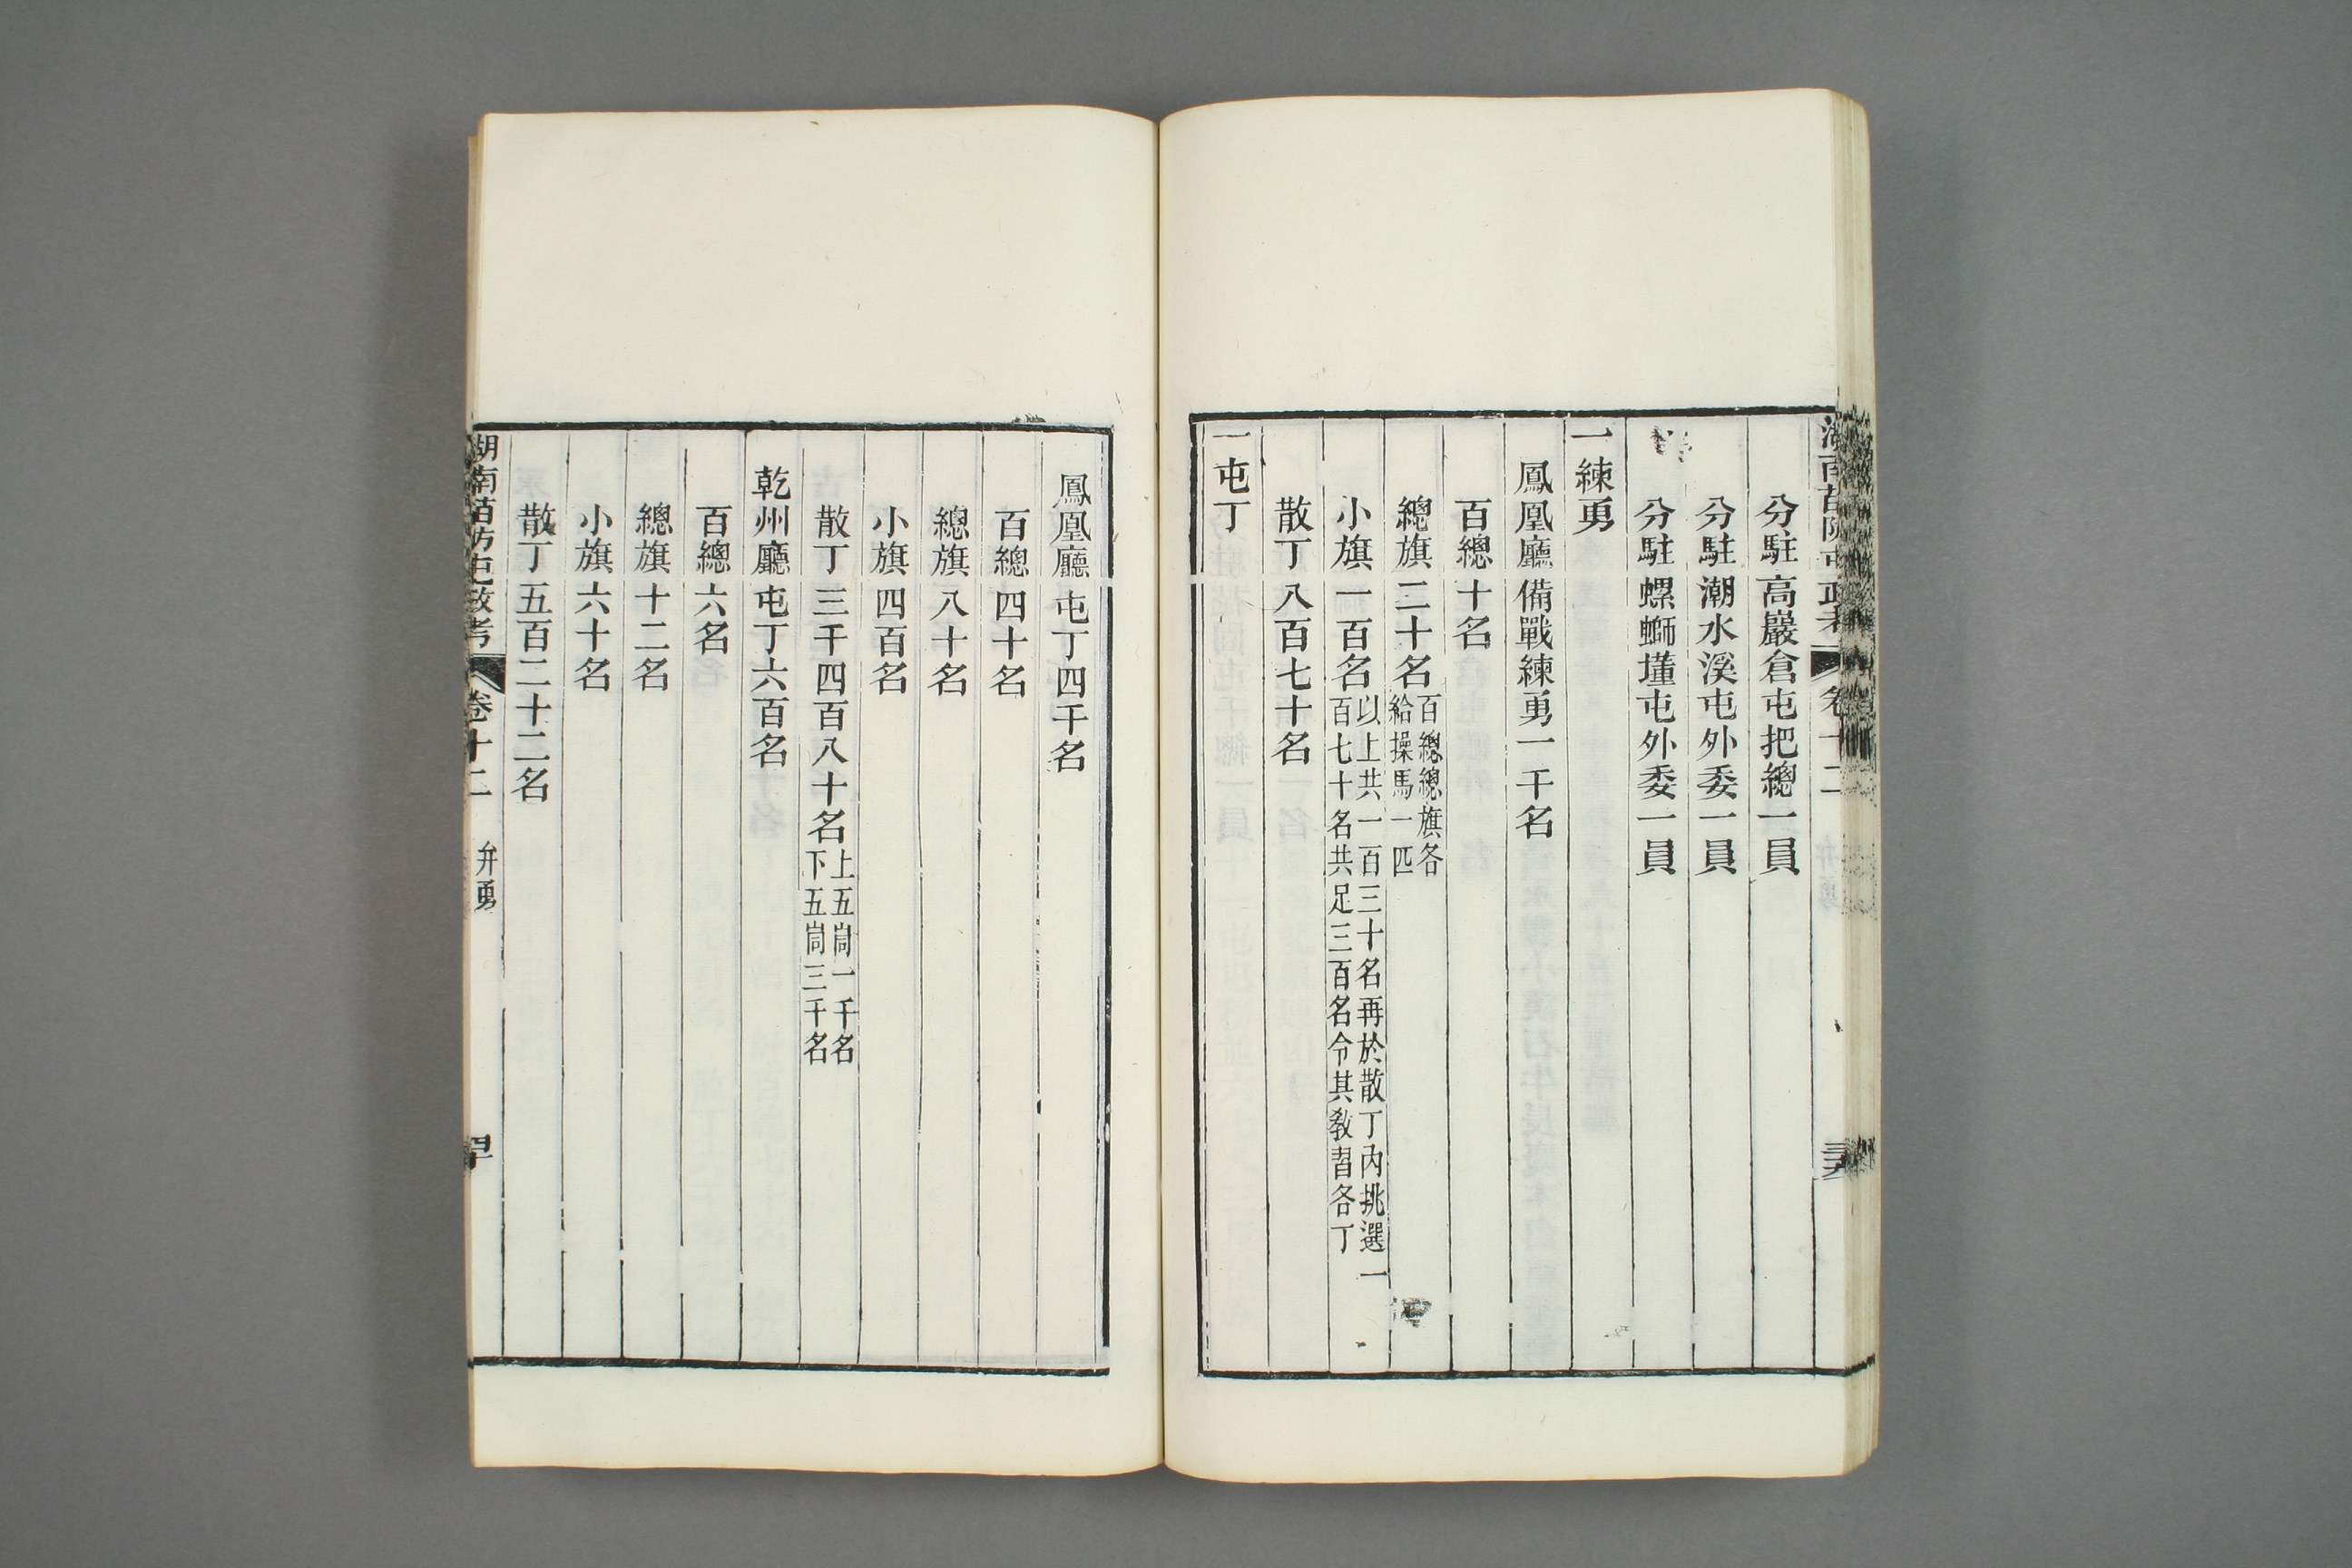 分駐高巖倉屯把總一員
分駐潮水溪屯外委一員
分駐螺螄墐屯外委一員
一練勇
鳳凰廳備戰練勇一千名
百總十名
總旗二十名百總總旗各
給操馬一匹
小旗一百名以上共一百三十名再於散丁內挑選一
百七十名共足三百名令其教習各丁
散丁八百七十名
一屯丁
鳳凰廳屯丁四千名
百總四十名
總旗八十名
小旗四百名
散丁三千四百八十名上五峝一千名
下五峝三千名
乾州廳屯丁六百名
百總六名
總旗十二名
小旗六十名
散丁五百二十二名
湖南苗防屯政考 卷十二 弁勇